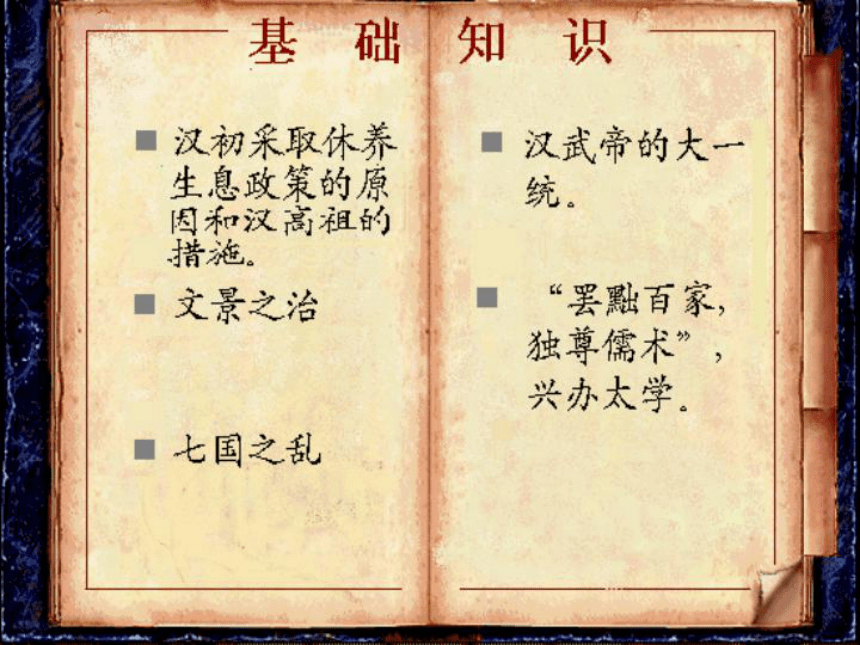 基础知识
■ 汉初采取休养
生息政策的原
因和汉高祖的
措施。
■ 文景之治
■ 七国之乱
■ 汉武帝的大一
统。
■ “罢黜百家，
独尊儒术”，
兴办太学。